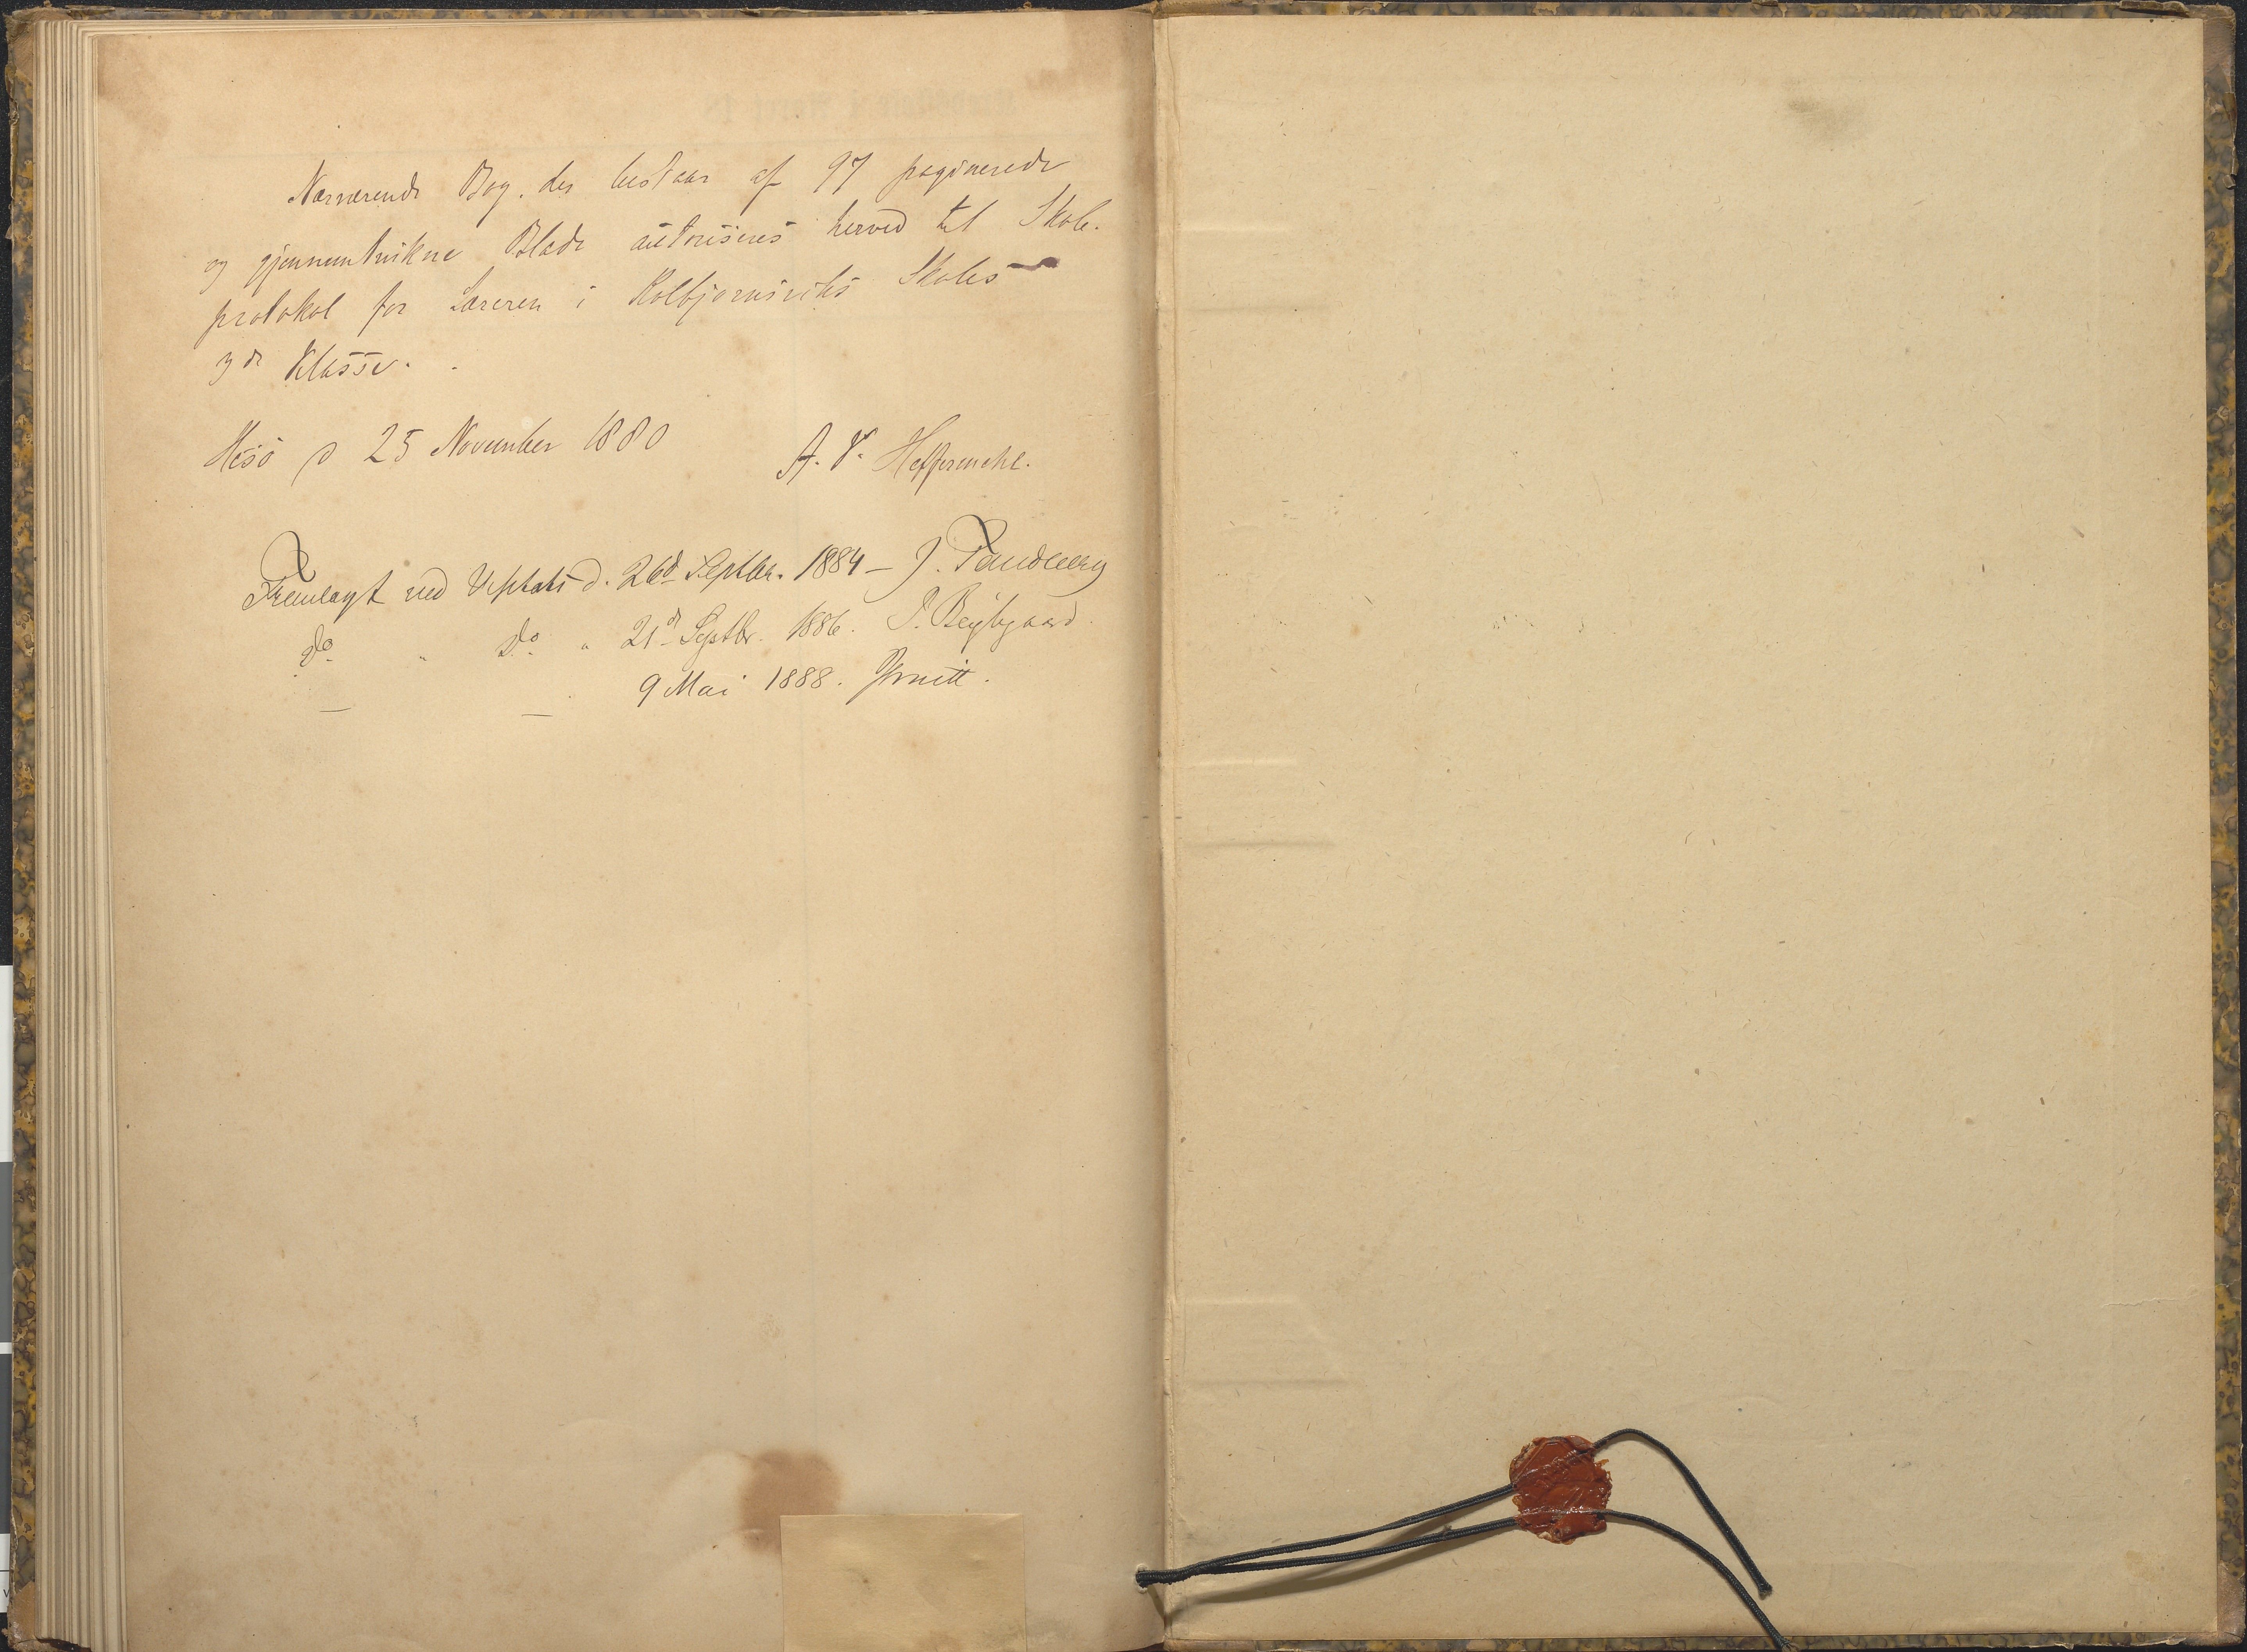 Nærværende Bog, der bestaar af 97 paginerede
og gjennemtrukne Blade autoriseres herved til Skole-
protokol for Læreren i Kolbjørnsviks Skoles
3de Klasse.
Hisö d 25 November 1880 A. V. Heffermehl.
Fremlagt ved Visitats d. 26d Septbr. 1884 – J.
do " do " 21d Septbr. 1886.
— — 9 Mai 1888.